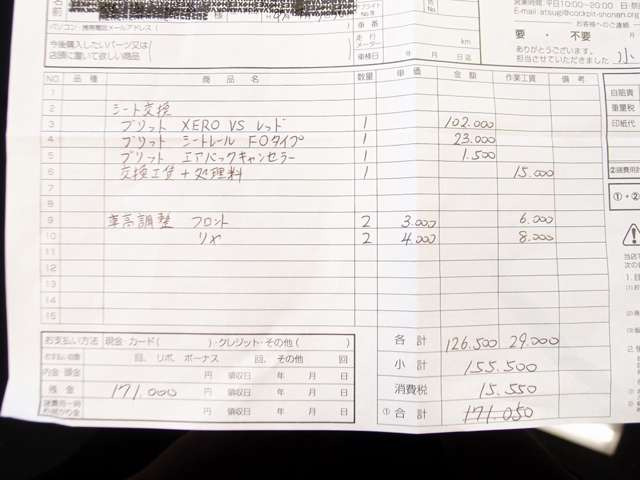 前
様
ブライト
No.
営業時間 平日10:00~20:00 日・祭
E-mail atsugi@cockpit-shonan.co
パソコン・携帯電話メールアドレス(
車番
お客様へのご連絡
今後購入したいパーツ又は
店頭に置いて欲しい商品
走行
メーター
km
要 ・ 不要
ありがとうございます。
車検日 年 月 日
担当させていただきました 小
NO 品種 商品名 数量 単価 金額 作業工賃 備考
自賠責
1
重量税
2 シート交換
3 ブリッド XERO VS レッド 1 102.000
印紙代
4 ブリッド シートレール FOタイプ 1 23.000
5 ブリッド エアバックキャンセラー 1 1.500
6 交換工賃+処理料 1 15.000
7
8
①+②
9 車高調整 フロント 2 3.000 6.000
10 リヤ 2 4.000 8.000
11
12
13
14
15
お支払い方法 現金 カード( )・クレジット・その他( )
各計 126.500 29.000
お支払い回数 回、リボ、ボーナス 回、その他 回
小計 155.500
内金 頭金 円 領収日 年 月 日
残金 171.000 円 領収日 年 月 日
消費税 15.550
円 領収日 年 月 日
①合計 171.050